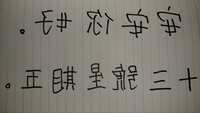 安安你好。
十三號星期五。